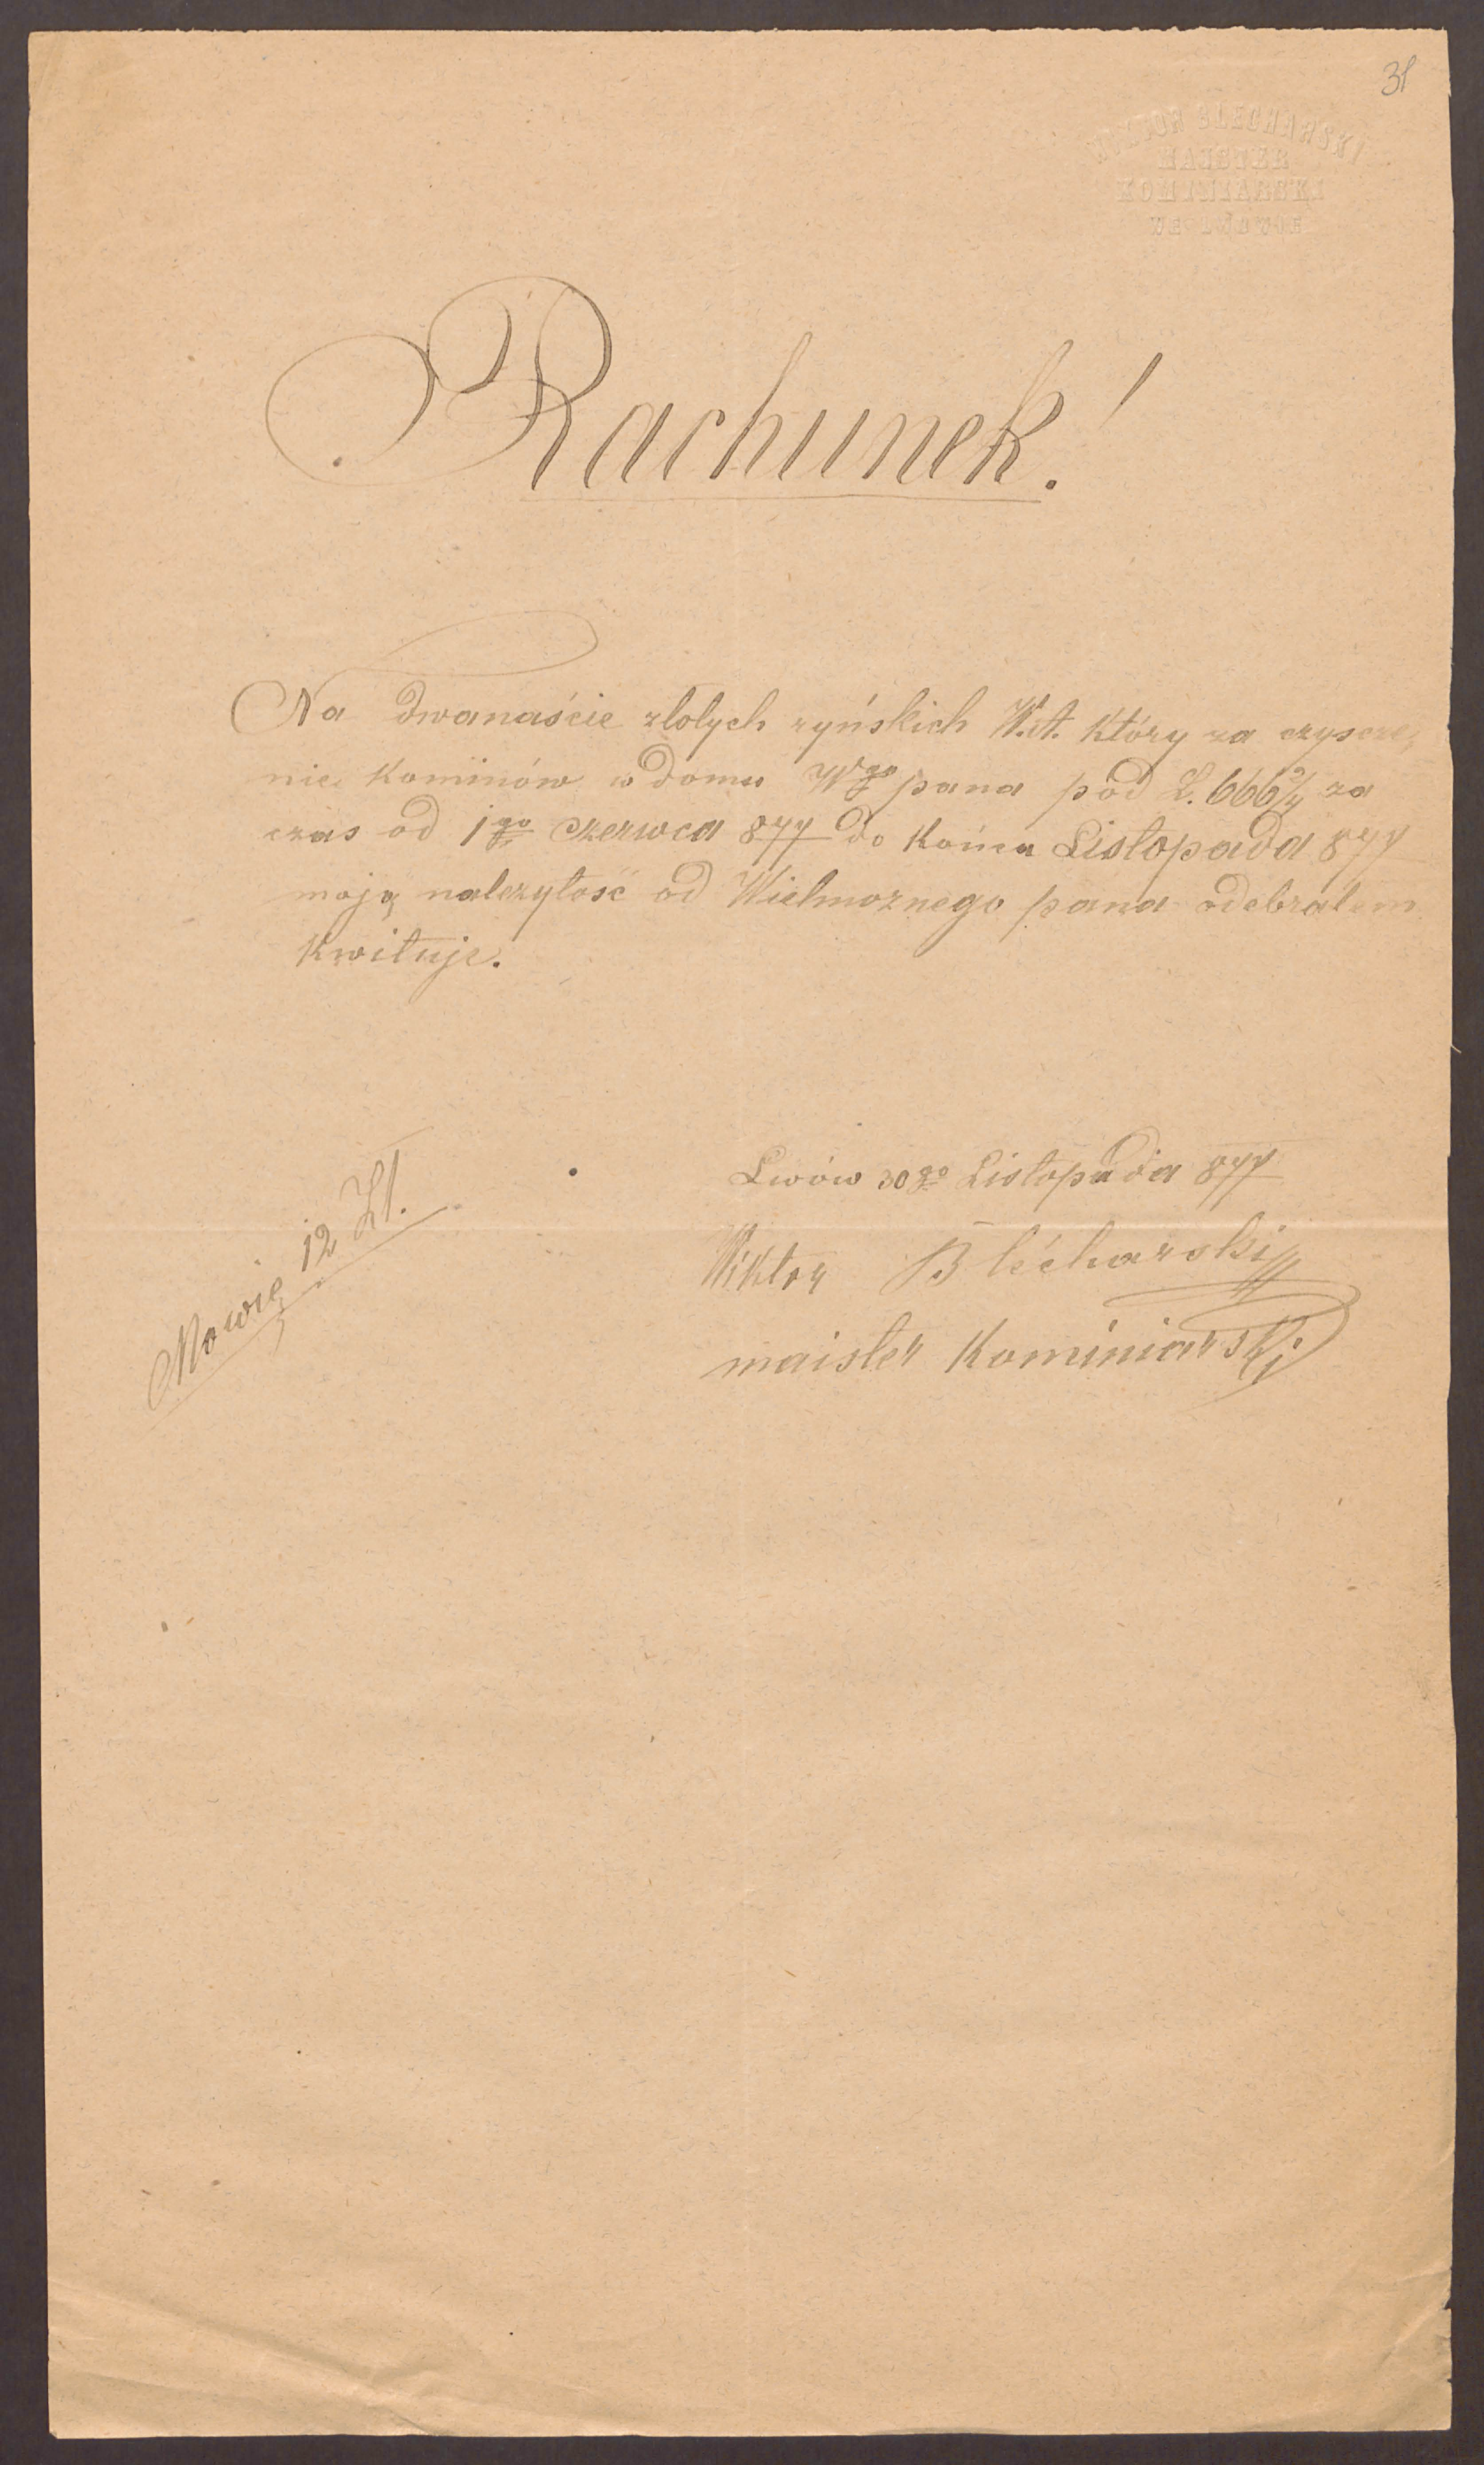 31
WIKTOR BLECHARSKI
MAJSTER
KOMINIARSKI
WE LWOWIE
Rachunek!
Na dwanaście zlotych ryńskich W.A. Który za czyscze,
nie Kominów w domu Wgo pana pod L. 666 2/4 za
czas od 1go Czerwca 877 do Końca Listopada 877
moją nalezytość od Wielmoznego pana odebralem
Kwituje.
Lwów 30go Listopada 877
Wiktor Blécharski
maister Kominiarski
Mowię 12 Zł.